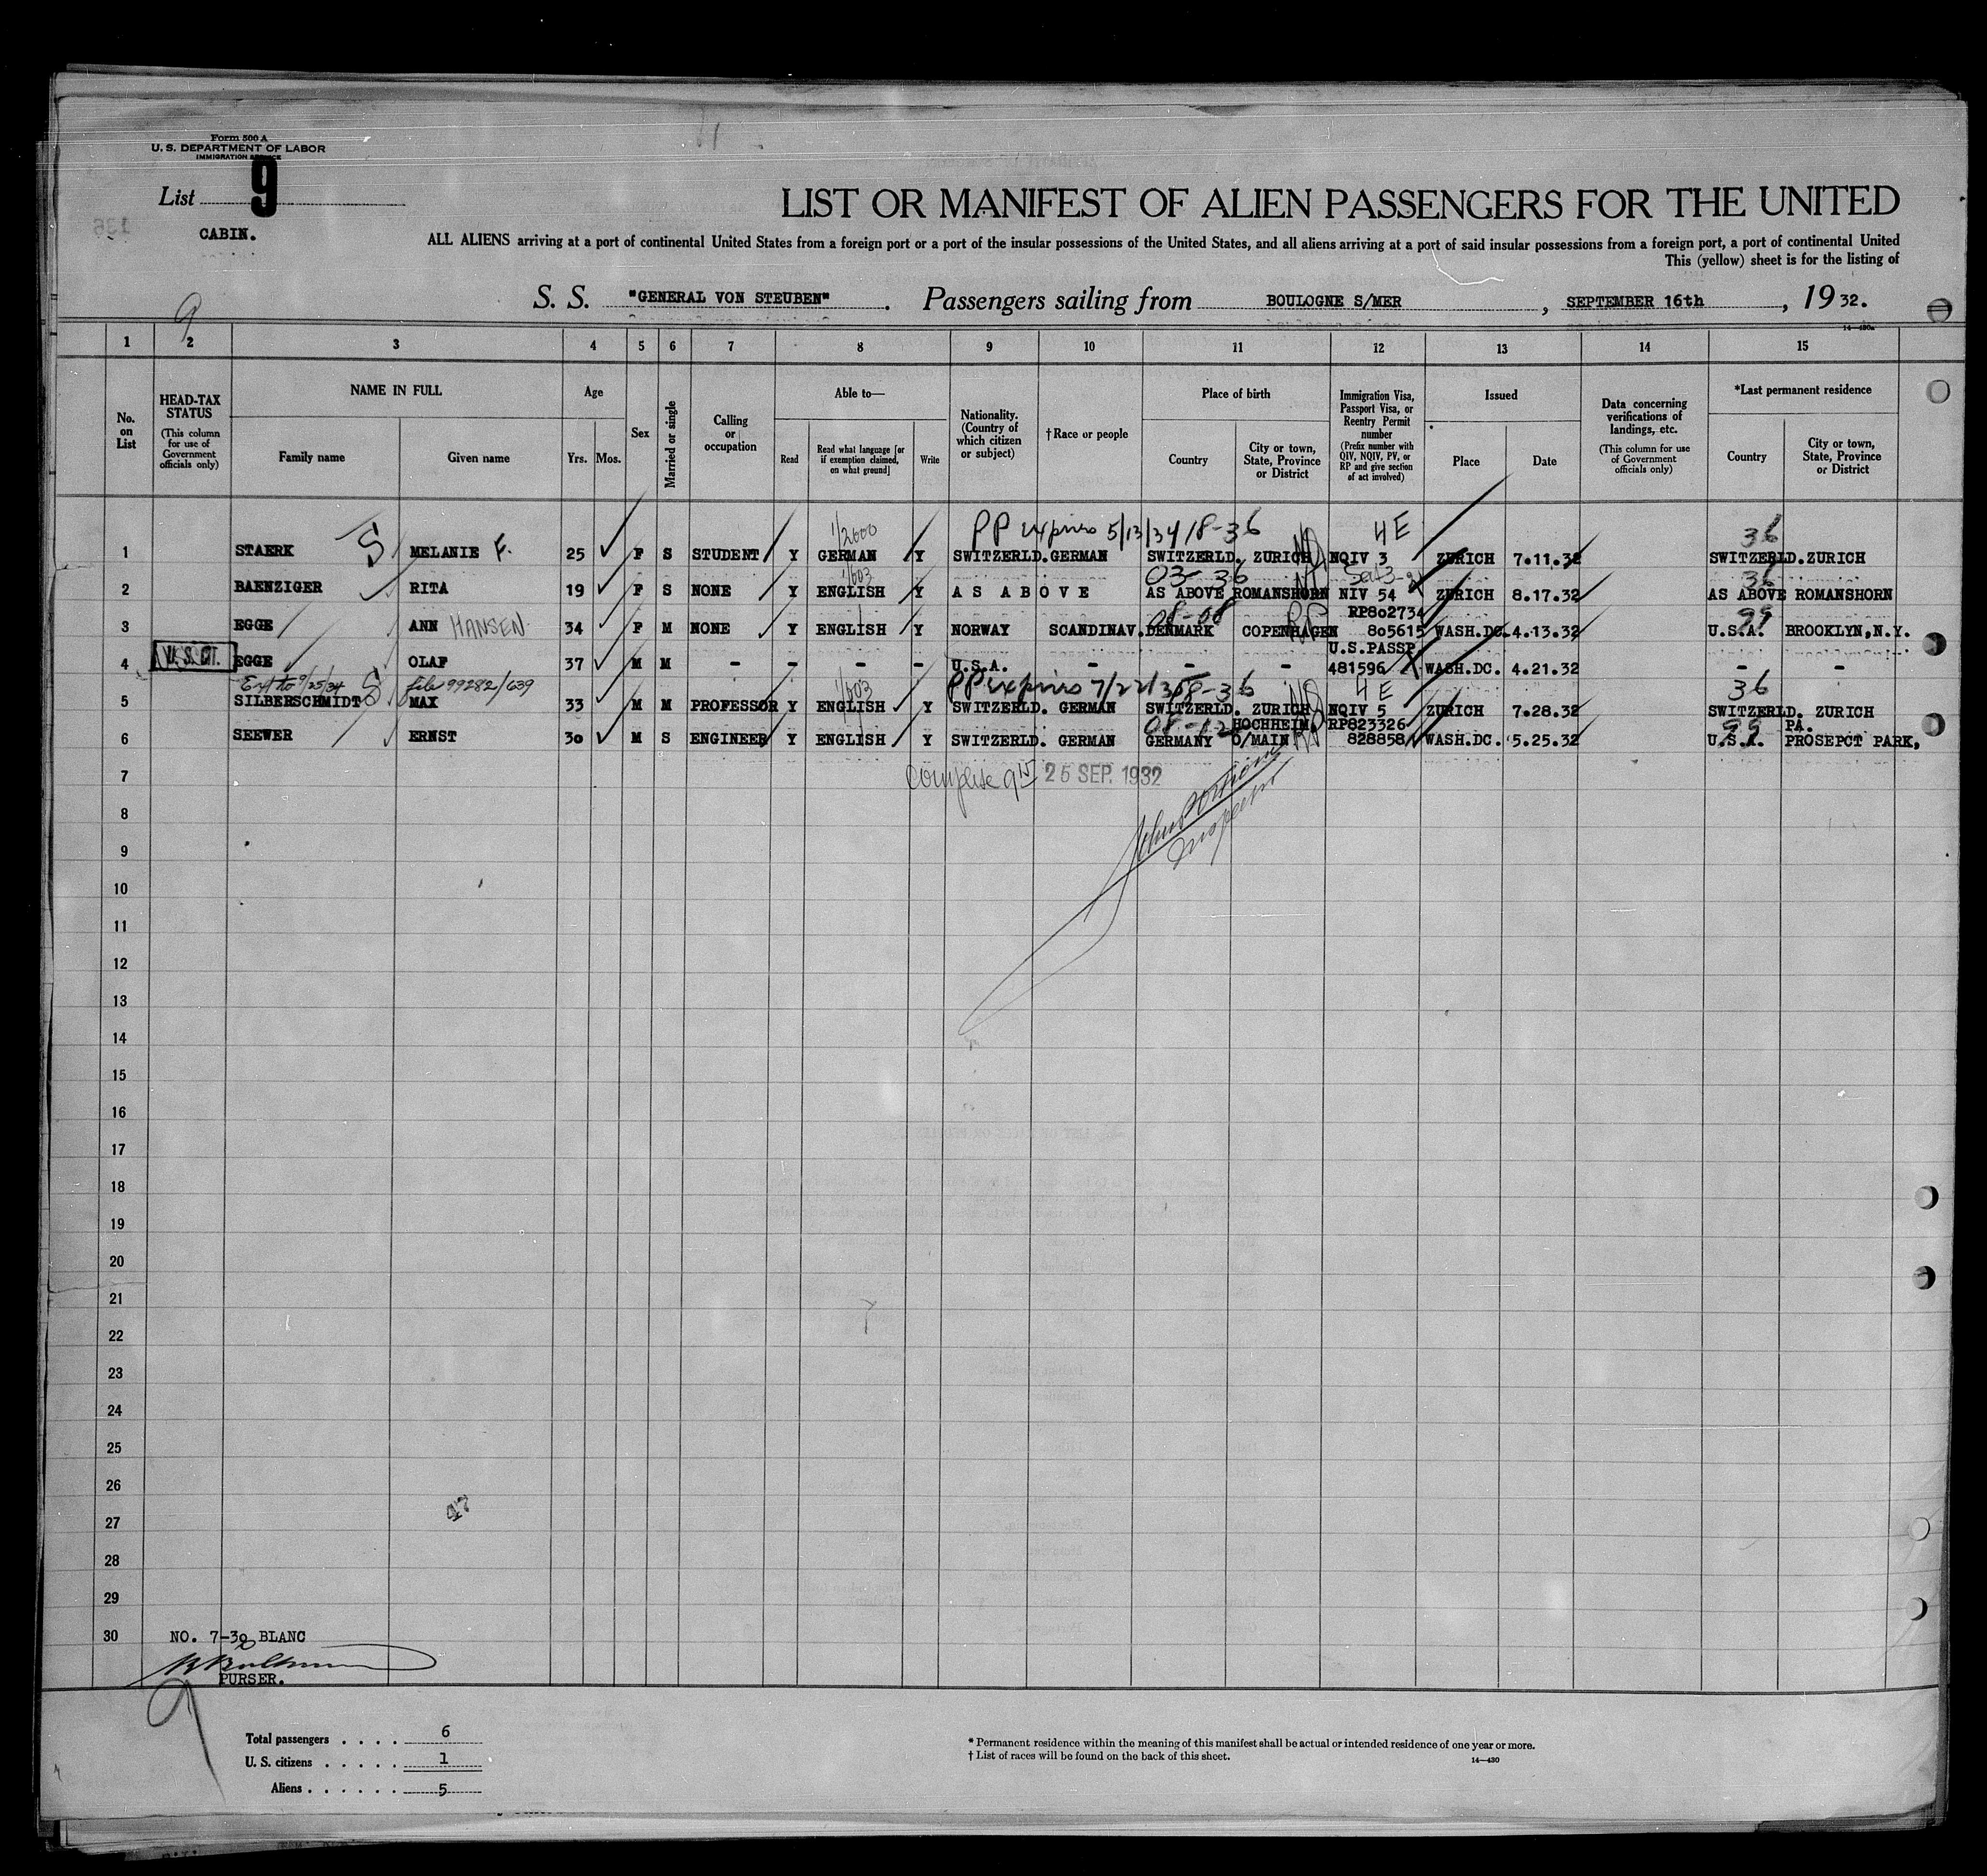 Form 500 A
U. S. DEPARTMENT OF LABOR
IMMIGRATION SERVICE
List 9
CABIN.
LIST OR MANIFEST OF ALIEN PASSENGERS FOR THE UNITED
ALL ALIENS arriving at a port of continental United States from a foreign port or a port of the insular possessions of the United States, and all aliens arriving at a port of said insular possessions from a foreign port, a port of continental United
This (yellow) sheet is for the listing of
S. S. "GENERAL VON STEUBEN". Passengers sailing from BOULOGNE S/MER, SEPTEMBER 16th, 1932.
14—430a
9
1 2 3 4 5 6 7 8 9 10 11 12 13 14 15
No. on List
HEAD-TAX STATUS (This column for use of Government officials only)
NAME IN FULL
Family name
Given name
Age
Yrs. Mos.
Sex
Married or single
Calling or occupation
Able to—
Read
Read what language [or if exemption claimed, on what ground]
Write
Nationality. (Country of which citizen or subject)
†Race or people
Place of birth
Country
City or town, State, Province or District
Immigration Visa, Passport Visa, or Reentry Permit number (Prefix number with QIV, NQIV, PV, or RP and give section of act involved)
Issued
Place
Date
Data concerning verifications of landings, etc. (This column for use of Government officials only)
*Last permanent residence
Country
City or town, State, Province or District
1/2600 PP expires 5/13/34 18-36 4E 36
1 STAERK S MELANIE F. 25 F S STUDENT Y GERMAN Y SWITZERLD. GERMAN SWITZERLD. ZURICH NQIV 3 ZURICH 7.11.32 SWITZERLD. ZURICH
1/603 03-36 36
2 BAENZIGER RITA 19 F S NONE Y ENGLISH Y AS ABOVE AS ABOVE ROMANSHORN NIV 54 ZURICH 8.17.32 AS ABOVE ROMANSHORN
08-08 RP RP802734 99
3 EGGE ANN HANSEN 34 F M NONE Y ENGLISH Y NORWAY SCANDINAV. DENMARK COPENHAGEN 805615 WASH.DC. 4.13.32 U.S.A. BROOKLYN,N.Y.
U.S.PASSP.
4 U.S. CIT. EGGE OLAF 37 M M - - - - U.S.A. - - - 481596 WASH.DC. 4.21.32 - -
Ext to 9/25/34 file 99282/639 1/603 PP expires 7/22/35 18-36 4E 36
5 SILBERSCHMIDT S MAX 33 M M PROFESSOR Y ENGLISH Y SWITZERLD. GERMAN SWITZERLD. ZURICH NQIV 5 ZURICH 7.28.32 SWITZERLD. ZURICH
08-12 HOCHHEIM RP RP823326 99 PA.
6 SEEWER ERNST 30 M S ENGINEER Y ENGLISH Y SWITZERLD. GERMAN GERMANY O/MAIN 828858 WASH.DC. 5.25.32 U.S.A. PROSEPCT PARK,
7 25 SEP. 1932
8
Inspector
9
10
11
12
13
14
15
16
17
18
19
20
21
22
23
24
25
26
47
27
28
29
30 NO. 7-30 BLANC
PURSER.
9
Total passengers . . . . 6
U. S. citizens . . . . . 1
Aliens . . . . . . 5
* Permanent residence within the meaning of this manifest shall be actual or intended residence of one year or more.
† List of races will be found on the back of this sheet.
14—430